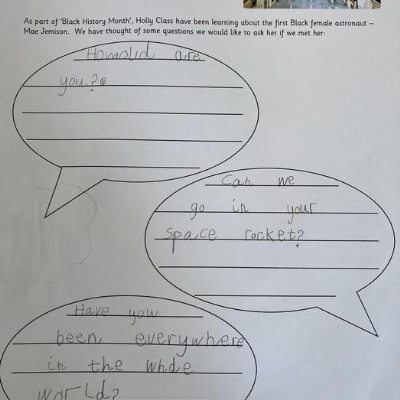 As part of 'Black History Month', Holly Class have been learning about the first Black female astronaut –
Mae Jemison. We have thought of some questions we would like to ask her if we met her:
Howolid are
you?
Can we
go in your
space rocket?
Have you
been everywhere
in the whole
world?